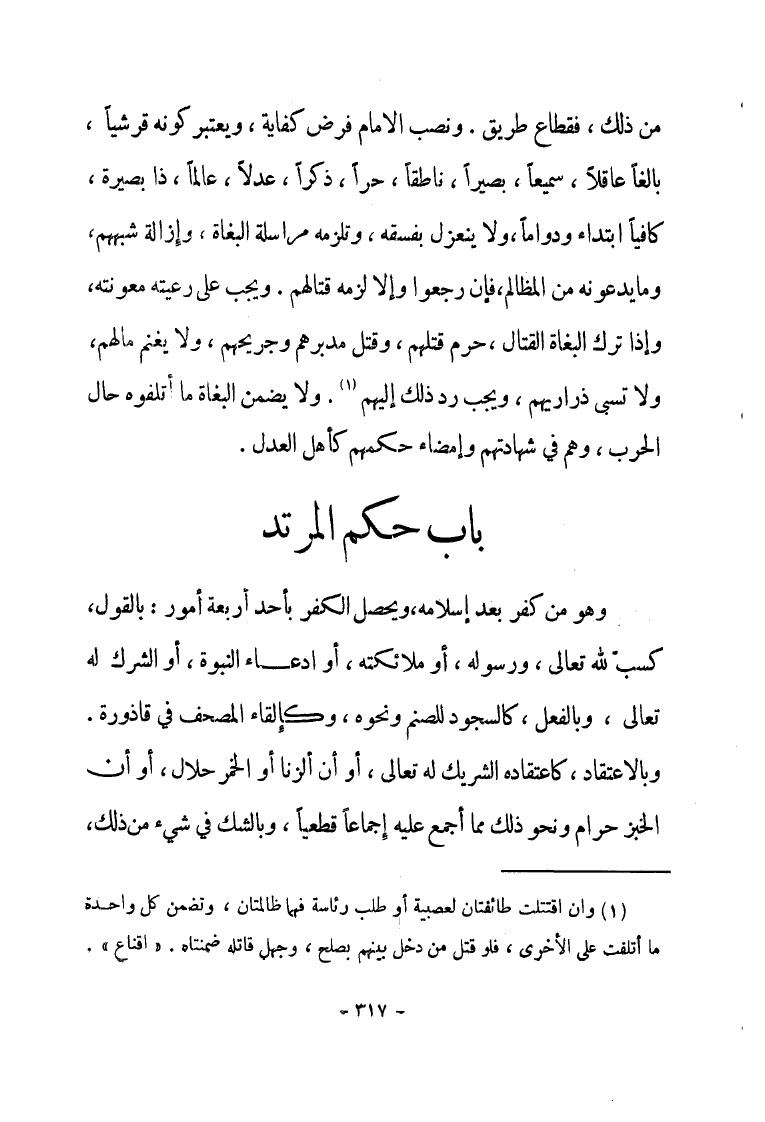 من ذلك ، فقطاع طريق . ونصب الامام فرض كفاية ، ويعتبر كونه قرشياً ،
بالغاً عاقلاً ، سميعاً ، بصيراً ، ناطقاً ، حراً ، ذكراً ، عدلاً ، عالماً ، ذا بصيرة ،
كافياً ابتداء ودواماً ،ولا ينعزل بفسقه ، وتلزمه مراسلة البغاة ، وإزالة شبههم،
ومايدعونه من المظالم،فإن رجعوا وإلا لزمه قتالهم . ويجب على رعيته معونته،
وإذا ترك البغاة القتال ،حرم قتلهم ، وقتل مدبرهم وجريحهم ، ولا يغنم مالهم،
ولا تسبى ذراريهم ، ويجب رد ذلك إليهم (١) . ولا يضمن البغاة ما أتلفوه حال
الحرب ، وهم في شهادتهم وإمضاء حكمهم كأهل العدل .
باب حكم المرتد
وهو من كفر بعد إسلامه،ويحصل الكفر بأحد أربعة أمور : بالقول،
كسبّ لله تعالى ، ورسوله ، أو ملائكته ، أو ادعاء النبوة ، أو الشرك له
تعالى ، وبالفعل ، كالسجود للصنم ونحوه ، وكإلقاء المصحف في قاذورة .
وبالاعتقاد ، كاعتقاده الشريك له تعالى ، أو أن ألزنا أو الخمر حلال ، أو أن
الخبز حرام ونحو ذلك مما أجمع عليه إجماعاً قطعياً ، وبالشك في شيء من ذلك،
(١) وان اقتتلت طائفتان لعصبية أو طلب رئاسة فهما ظالمتان ، وتضمن كل واحدة
ما أتلفت على الأخرى ، فلو قتل من دخل بينهم بصلح ، وجهل قاتله ضمنتاه . « اقناع » .
- ٣١٧ -